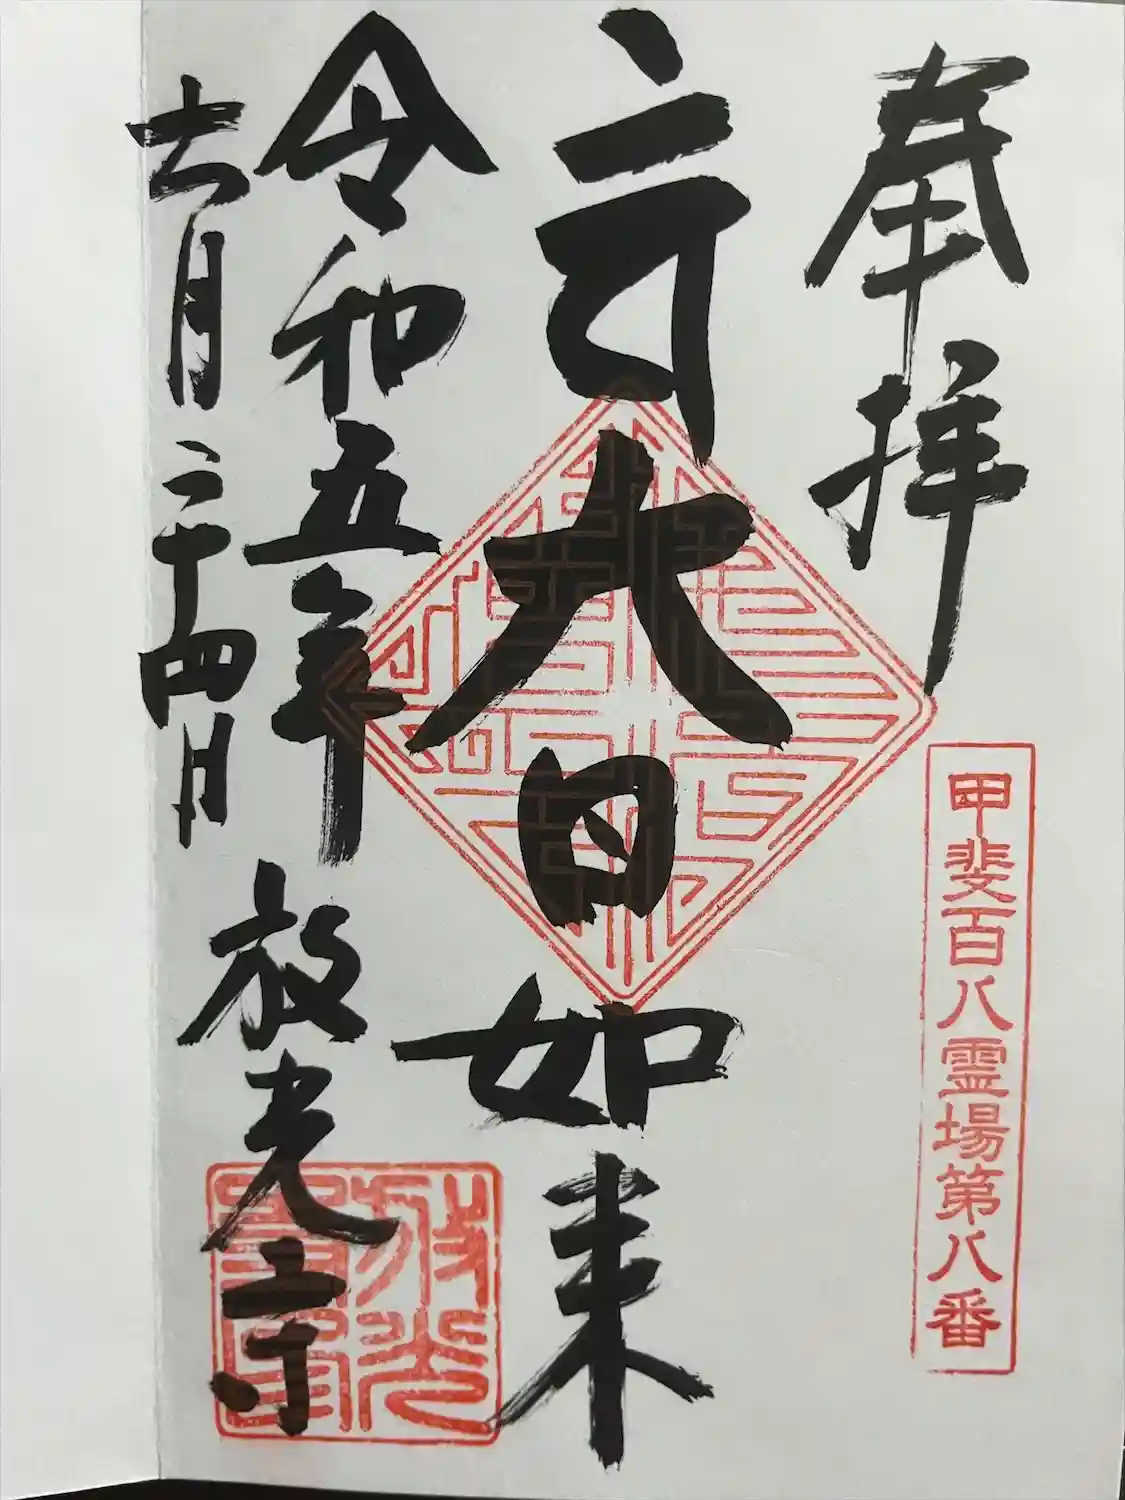 奉拝
甲斐百八霊場第八番
大日如来
令和五年
六月二十四日
放光寺